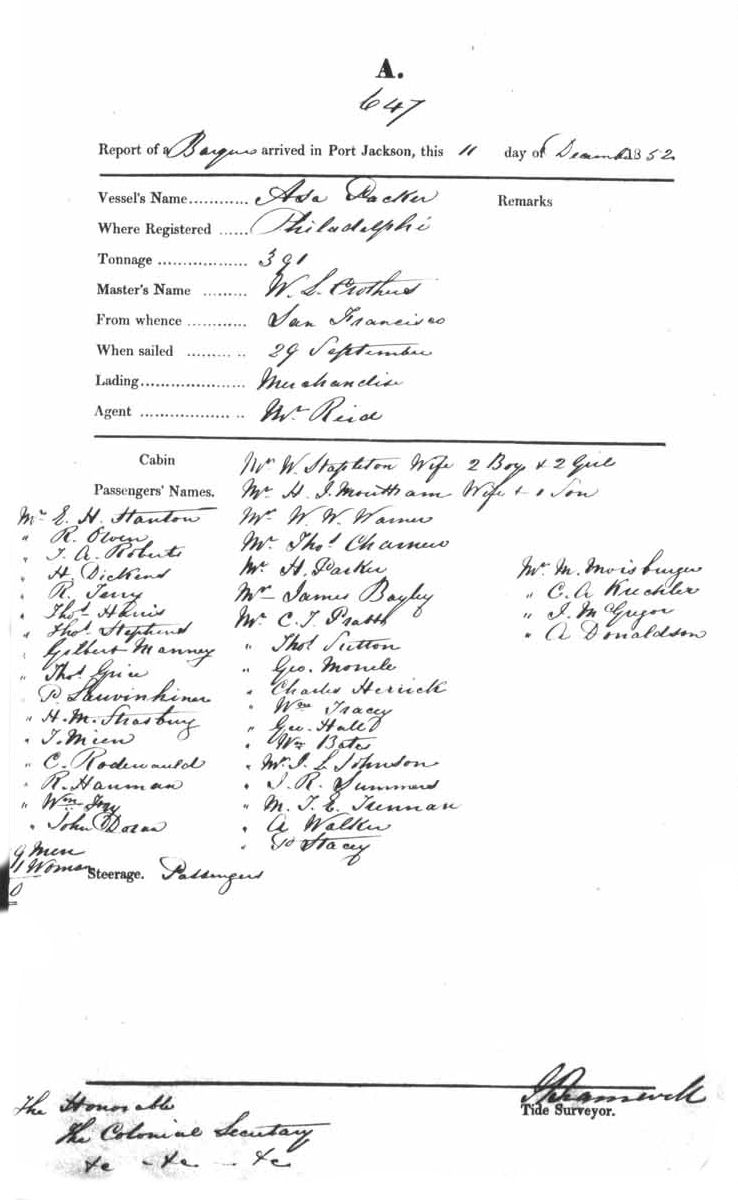 A.
647
Report of a Barque arrived in Port Jackson, this 11 day of December 1852
Vessel's Name............ Asa Packer
Remarks
Where Registered ...... Philadelphi
Tonnage .................. 391
Master's Name ......... W. L. Crothers
From whence ............ San Francisco
When sailed ......... .. 29 September
Lading...................... Merchandise
Agent .................. .. Mr Reid
Cabin
Passengers' Names.
Mr W. Stapleton Wife 2 Boys & 2 Girl
Mr H. J. Wife & 1 Son
Mr E. H. Stanton
" R. Owen
" J. A. Roberts
" H. Dickens
" R. Terry
" Thos Harris
" Thos Stephens
" Gilbert Manney
" Thos Grice
" P.
" H. M. Strasburg
" J. Mien
" C. Rodewauld
" R. Hanman
" Wm
" John Doran
9 Men
1 Woman
Mr W. W. Warner
Mr Thos
Mr H. Parker
Mr James Bayley
Mr C. J. Pratt
" Thos Sutton
" Geo.
" Charles Herrick
" Wm Tracey
" Geo. Hall
" Wm Bates
" Mr J. L. Johnson
" J. R. Summers
" M. J. E.
" A Walker
" P Stacey
Mr M. Moisburger
" C. A Kuchler
" J. McGregor
" A Donaldson
Steerage. Passengers
Tide Surveyor.
The Honorable
The Colonial Secretary
&c - &c - &c